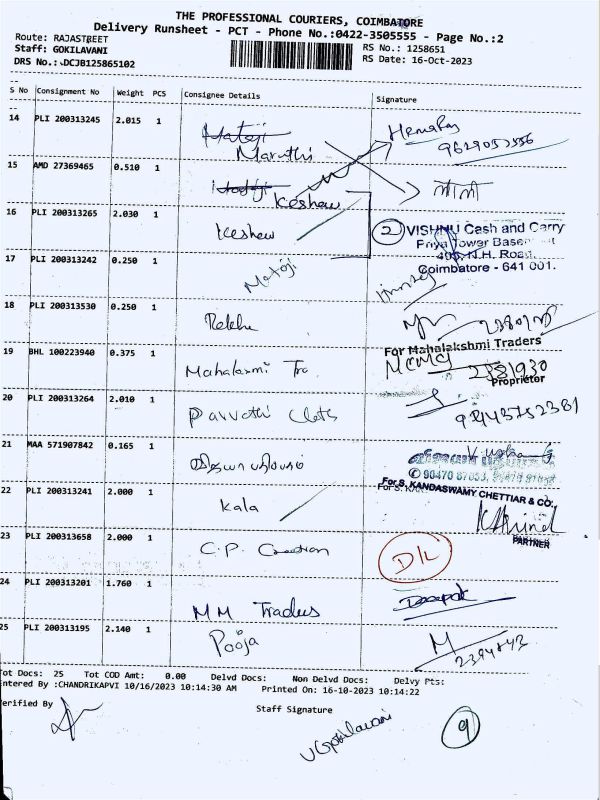 THE PROFESSIONAL COURIERS, COIMBATORE
Delivery Runsheet - PCT - Phone No.:0422-3505555 - Page No.:2
Route: RAJASTREET
RS No.: 1258651
Staff: GOKILAVANI
RS Date: 16-Oct-2023
DRS No.: DCJB125865102
S No Consignment No Weight PCS Consignee Details Signature
14 PLI 200313245 2.015 1 Mataji Hemaraj
Maruthi 9629052556
15 AMD 27369465 0.510 1 Mataji
Keshaw
16 PLI 200313265 2.030 1 Keshaw 2 VISHNU Cash and Carry
Priya Tower Basement
N.H. Road,
Coimbatore - 641 001.
17 PLI 200313242 0.250 1 Mataji
18 PLI 200313530 0.250 1 Rekha
19 BHL 100223940 0.375 1 Mahalaxmi Tra. For Mahalakshmi Traders
Proprietor
20 PLI 200313264 2.010 1 Parvathi Cloths
21 MAA 571907842 0.165 1
22 PLI 200313241 2.000 1 Kala For S. KANDASWAMY CHETTIAR & CO.,
PARTNER
23 PLI 200313658 2.000 1 C.P. Creation D/L
24 PLI 200313201 1.760 1 MM Traders Deepak
25 PLI 200313195 2.140 1 Pooja
Tot Docs: 25 Tot COD Amt: 0.00 Delvd Docs: Non Delvd Docs: Delvy Pts:
Entered By :CHANDRIKAPVI 10/16/2023 10:14:30 AM Printed On: 16-10-2023 10:14:22
Verified By
Staff Signature
V Gokilavani
9